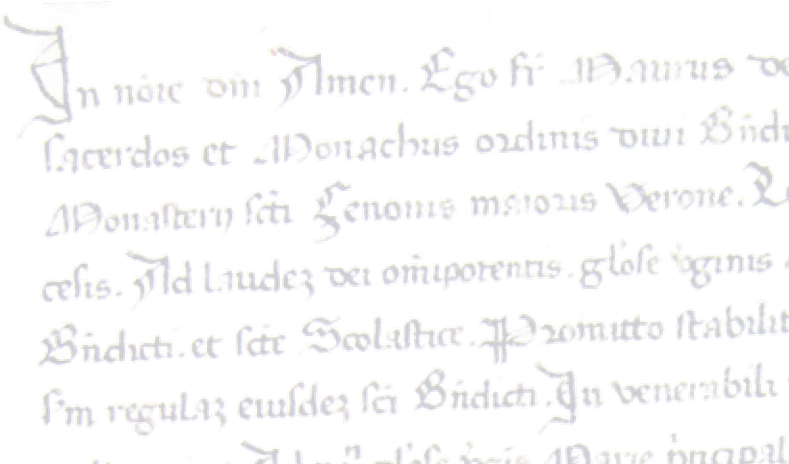 In nōīe dn̄i Amen. Ego fr̄ Maurus de
sacerdos et Monachus ordinis diui Bn̄di
Monasterij sc̄ti Zenonis maioris Verone.
cesis. Ad laudeʒ dei om̄ipotentis. gl'ose v̓ginis
Bn̄dicti. et sc̄te Scolastice. Promitto stabilit
s'm regulaʒ eiusdeʒ sc̄i Bn̄dicti. In venerabili
gl'ose Marie p̓ncipal